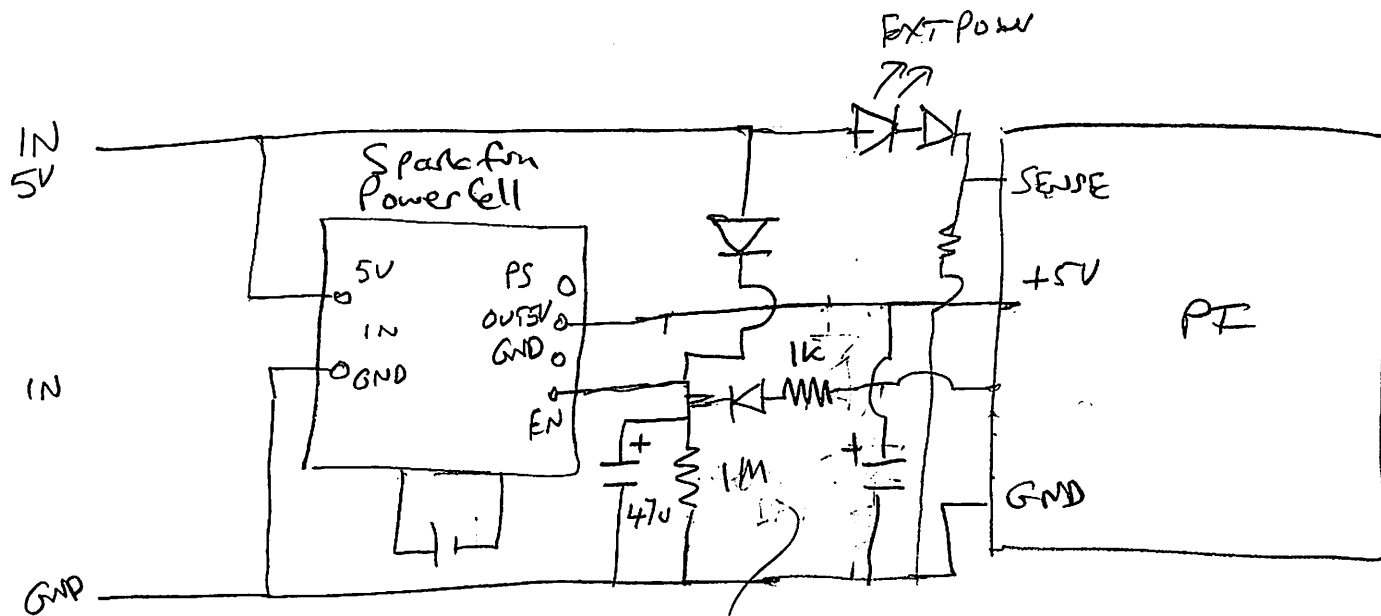 EXT POWER
IN
5V
Sparkfun
PowerCell
SENSE
5V
PS
+5V
OUT5V
PI
IN
GND
1K
GND
IN
EN
+
+
1M
47u
GND
GND